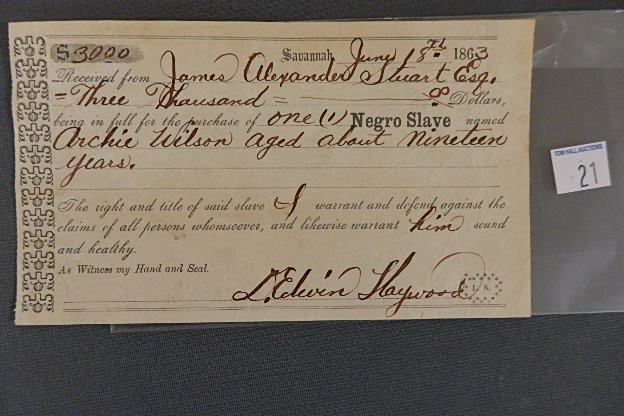 $ 3000 Savannah, June 18th 1863
Received from James Alexander Stuart Esq.
= Three Thousand = Dollars,
being in full for the purchase of one (1) Negro Slave named
Archie Wilson aged about nineteen
years.
The right and title of said slave I warrant and defend against the
claims of all persons whomsoever, and likewise warrant him sound
and healthy.
As Witness my Hand and Seal.
Edwin Haywood L. S.
TOM HALL AUCTIONS
21